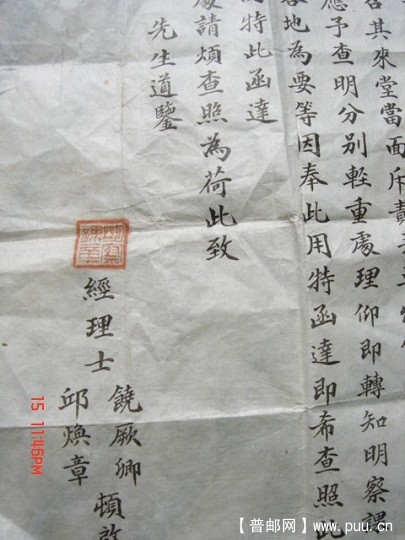 其來堂當面斥責
應予查明分別輕重處理仰即轉知明察課
地為要等因奉此用特函達即希查照此
特此函達
處請煩查照為荷此致
先生道鑒
經理士
饒厥卿
邱煥章
頓啟
15 11:46PM
【普邮网】www.puu.cn